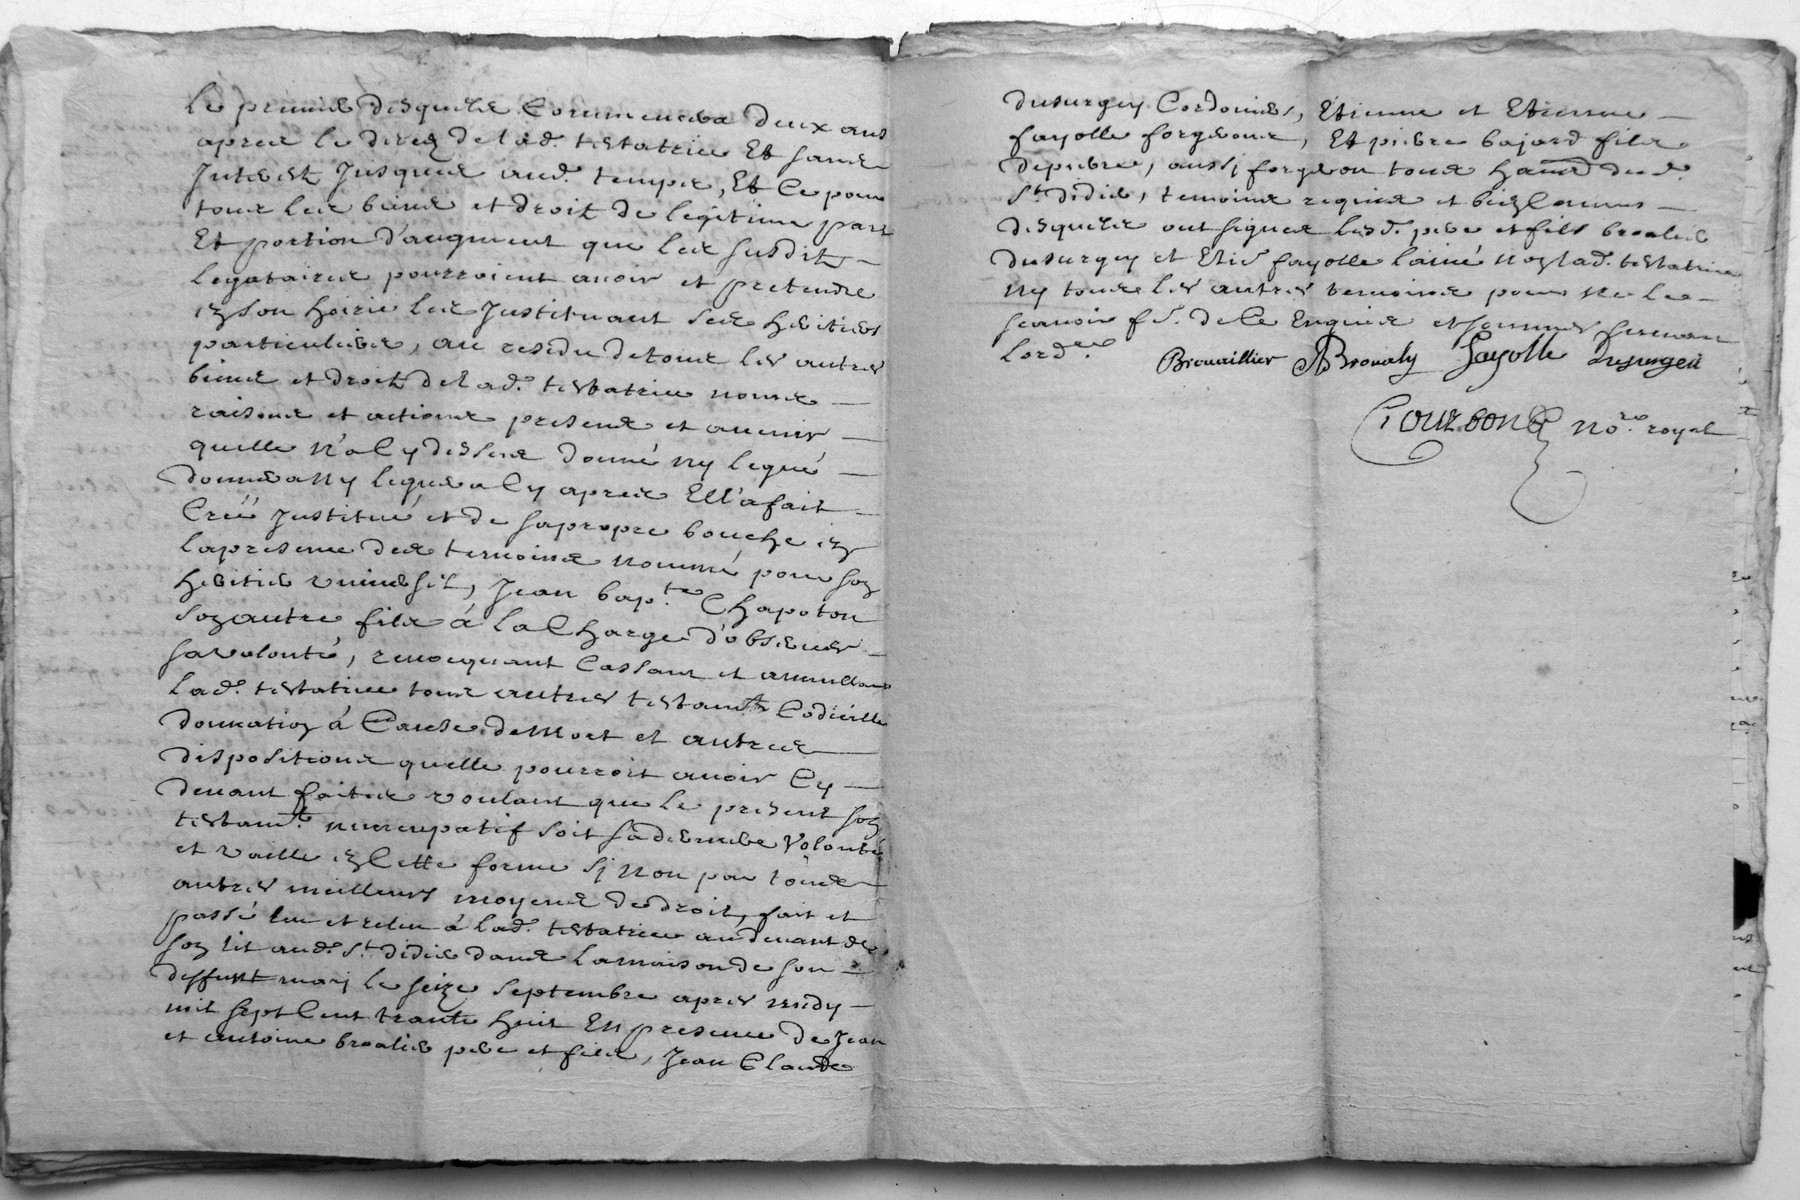 le premier desquels commencera deux ans
apres le deces de lad. testatrice Et sans
Interest Jusques aud. temps, Et ce pour
tous les biens et droits de legitime part
Et portion d'augment que les susdits
legataires pourroient avoir et pretendre
en son hoirie les Instituant ses heritiers
particuliers, au residu de tous les autres
biens et droits de lad. testatrice noms
raisons et actions presens et avenir
quelle n'a cy dessus donné ny legué
donnera ny leguera cy apres Ell'a fait
Creé Institué et de sa propre bouche en
la presence des temoins nommé pour son
heritier universel, Jean bap.te Chapoton
son autre fils á la Charge d'observer
sa volonté, revocquant Cassant et annullant
lad. testatrice tous autres testam.ts Codicille
donnation á Cause de Mort et autres
dispositions quelle pourroit avoir Cy
devant faites voulant que le present son
testam.t nuncupatif soit sa derniere Volonté
et vaille en Cette forme sy non par tous
autres meilleurs moyens de droit, fait et
passé leu et releu á lad. testatrice au devant de
son lit aud. S.t didier dans la maison de son
deffunt mary le seize septembre apres midy
mil sept Cent trante huit En presence de Jean
et antoine pere et fils, Jean Claude
dusurgey Cordonier, Etienne et Etienne
fayolle forgerons, Et pierre bajard fils
de pierre, aussy forgeron tous dud.
S.t didier, temoins requis et bien Connus
desquels ont signes lesd. pere et fils
dusurgey et fayolle lainé non lad. testatrice
ny tous les autres temoins pour ne le
scavoir f S. de Ce Enquis et sommes suivan
lord.ce
Brouailly Fayolle dusurgeii
No.re royal